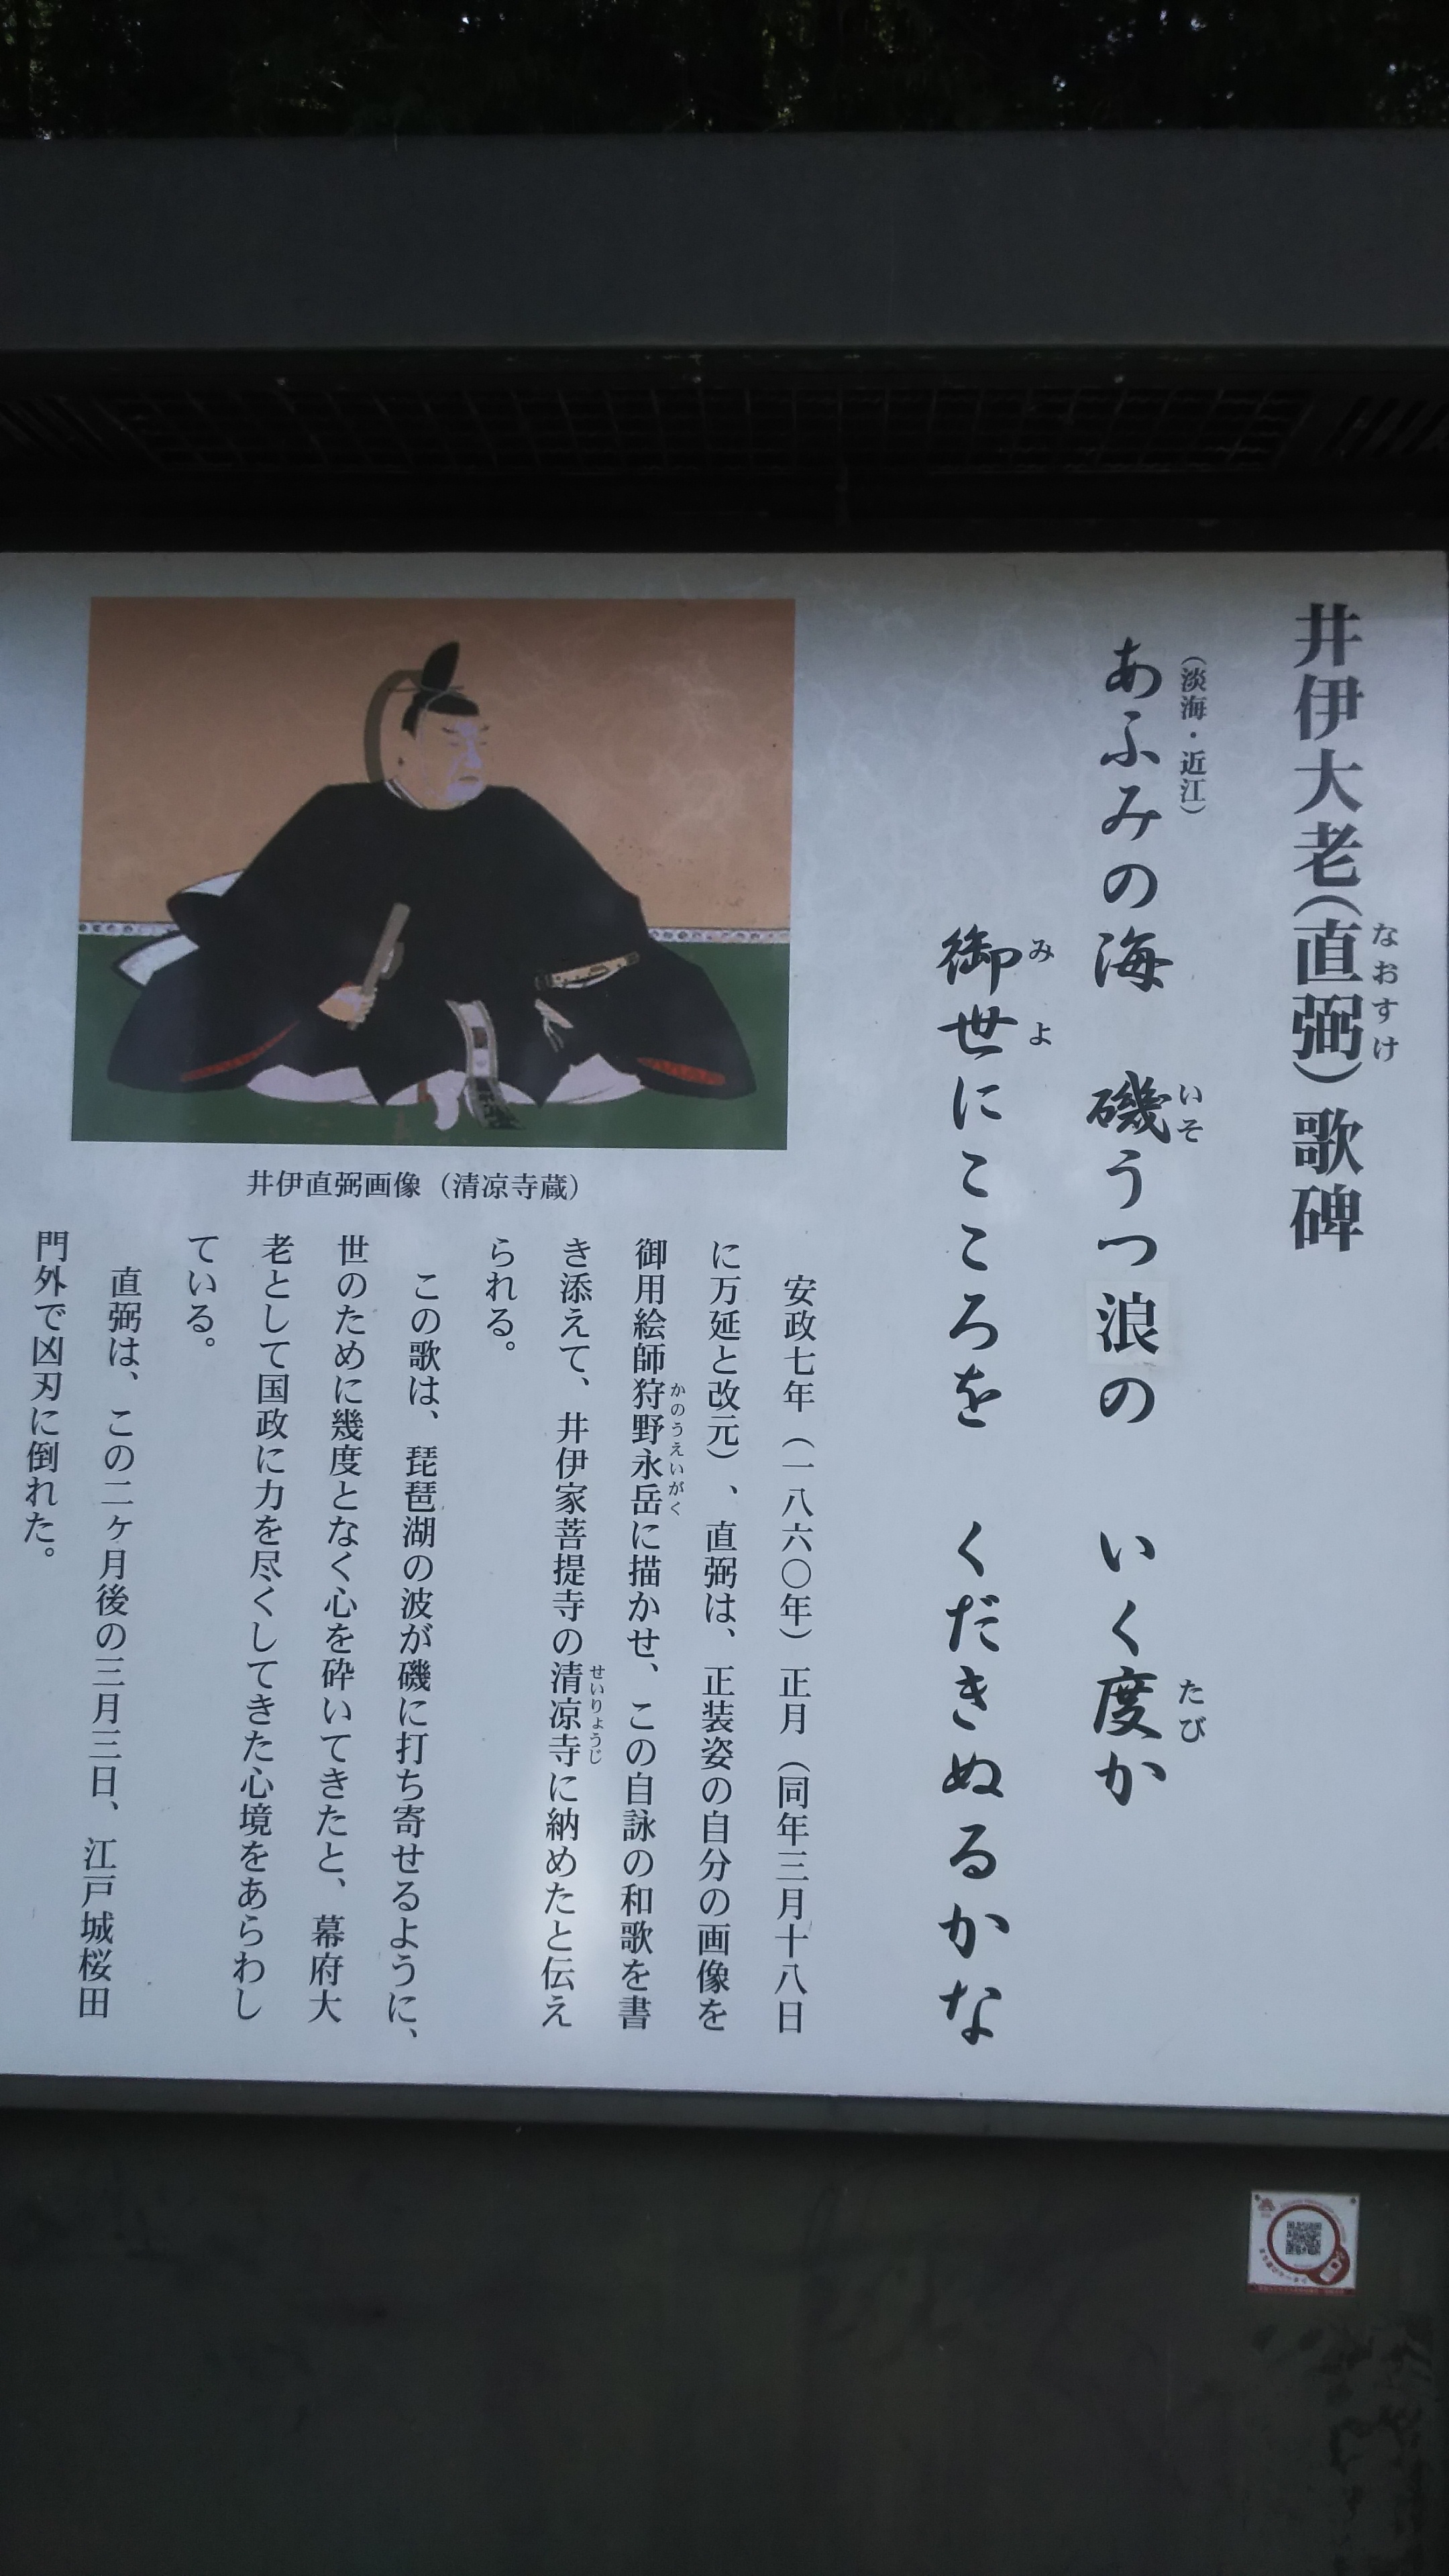 井伊大老(直弼)歌碑
なおすけ
(淡海・近江)
あふみの海 磯うつ浪の いく度か
いそ
たび
御世にこころを くだきぬるかな
みよ
安政七年(一八六〇年)正月(同年三月十八日
に万延と改元)、直弼は、正装姿の自分の画像を
御用絵師狩野永岳に描かせ、この自詠の和歌を書
かのうえいがく
き添えて、井伊家菩提寺の清凉寺に納めたと伝え
せいりょうじ
られる。
この歌は、琵琶湖の波が磯に打ち寄せるように、
世のために幾度となく心を砕いてきたと、幕府大
老として国政に力を尽くしてきた心境をあらわし
ている。
直弼は、この二ヶ月後の三月三日、江戸城桜田
門外で凶刃に倒れた。
井伊直弼画像(清凉寺蔵)